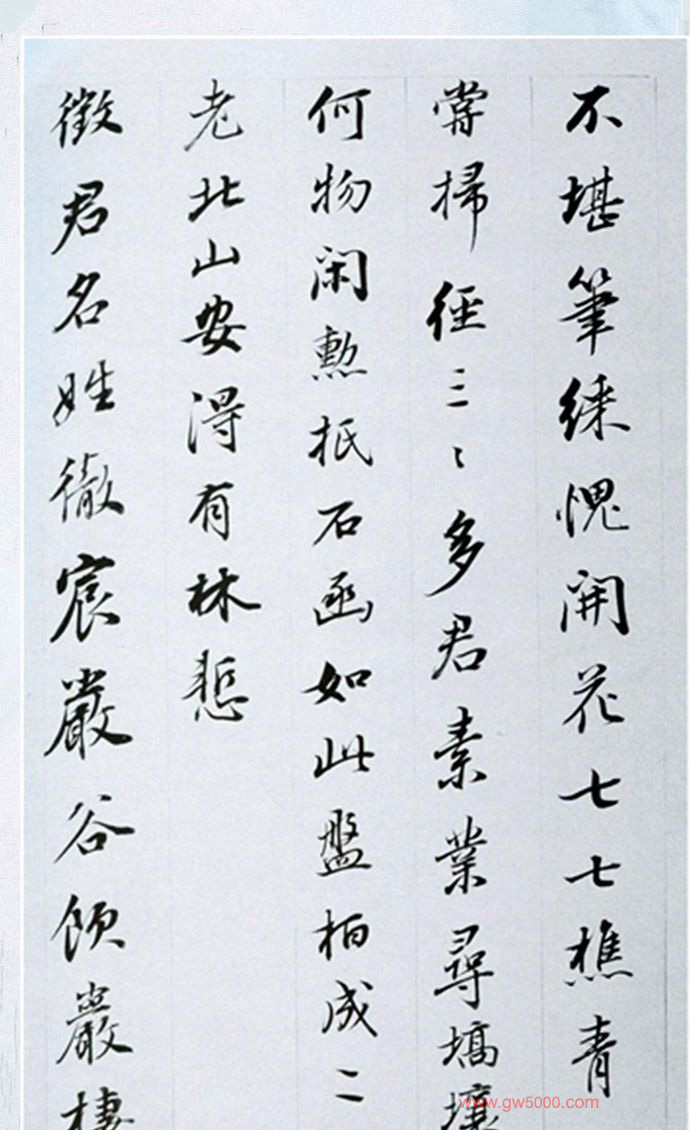 不堪筆練愧開花七七樵青
常掃徑三〻多君素業尋墙壤
何物閑勲抵石函如此盤柏成二
老北山安得有林慙
徵君名姓徹宸嚴谷領巖棲
www.gw5000.com